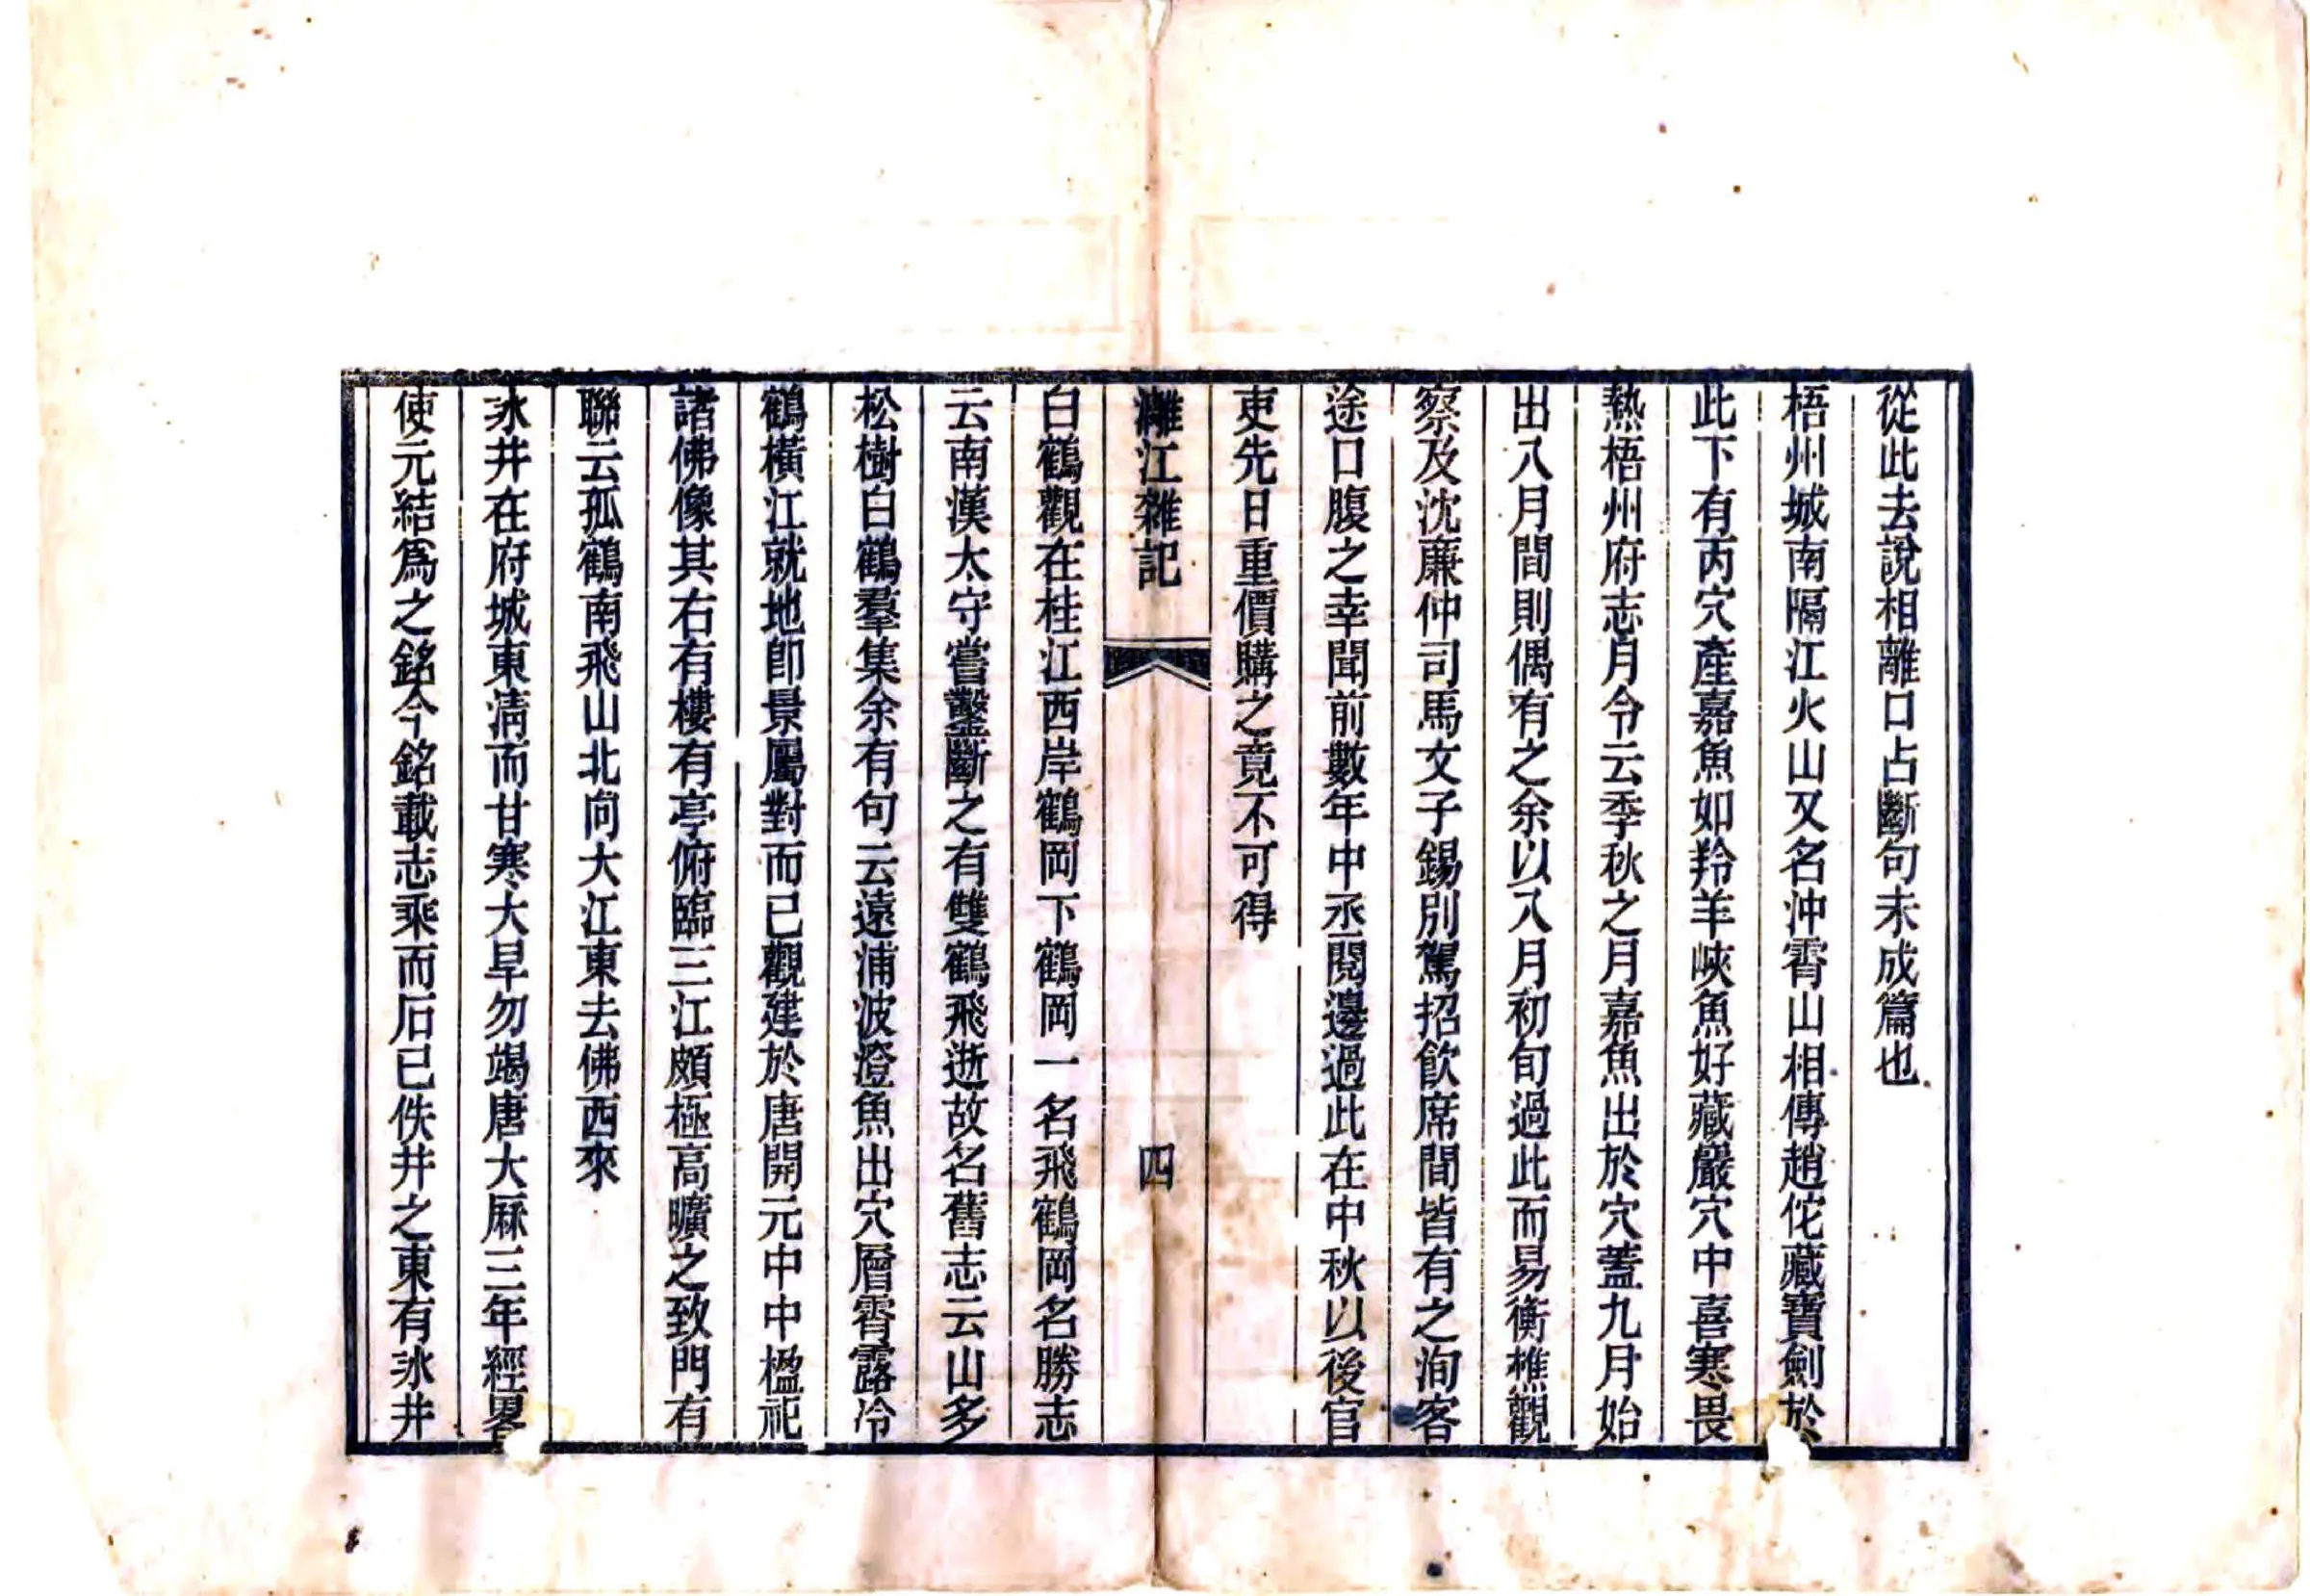 從此去說相離口占斷句未成篇也
梧州城南隔江火山又名沖霄山相傳趙佗藏寶劍於
此下有丙穴產嘉魚如羚羊峽魚好藏巖穴中喜寒畏
熱梧州府志月令云季秋之月嘉魚出於穴蓋九月始
出入月間則偶有之余以入月初旬過此而易衡樵觀
察及沈廉仲司馬文子錫別駕招飲席間皆有之洵客
途口腹之幸聞前數年中丞閱邊過此在中秋以後官
吏先日重價購之竟不可得
灕江雜記
四
白鶴觀在桂江西岸鶴岡下鶴岡一名飛鶴岡名勝志
云南漢太守嘗鑿斷之有雙鶴飛逝故名舊志云山多
松樹白鶴羣集余有句云遠浦波澄魚出穴層霄露冷
鶴橫江就地卽景屬對而已觀建於唐開元中中楹祀
諸佛像其右有樓有亭俯臨三江頗極高曠之致門有
聯云孤鶴南飛山北向大江東去佛西來
冰井在府城東清而甘寒大旱勿竭唐大厤三年經畧
使元結爲之銘今銘載志乘而石已佚井之東有冰井